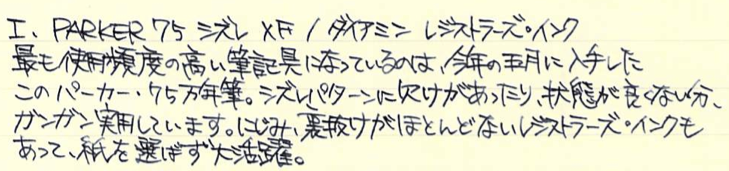 I、PARKER 75 シズレ XF / ダイアミン レジストラーズ・インク
最も使用頻度の高い筆記具になっているのは、今年の五月に入手した
このパーカー・75万年筆。シズレパターンに欠けがあったり、状態が良くない分、
ガンガン実用しています。にじみ、裏抜けがほとんどないレジストラーズ・インクも
あって、紙を選ばず大活躍。